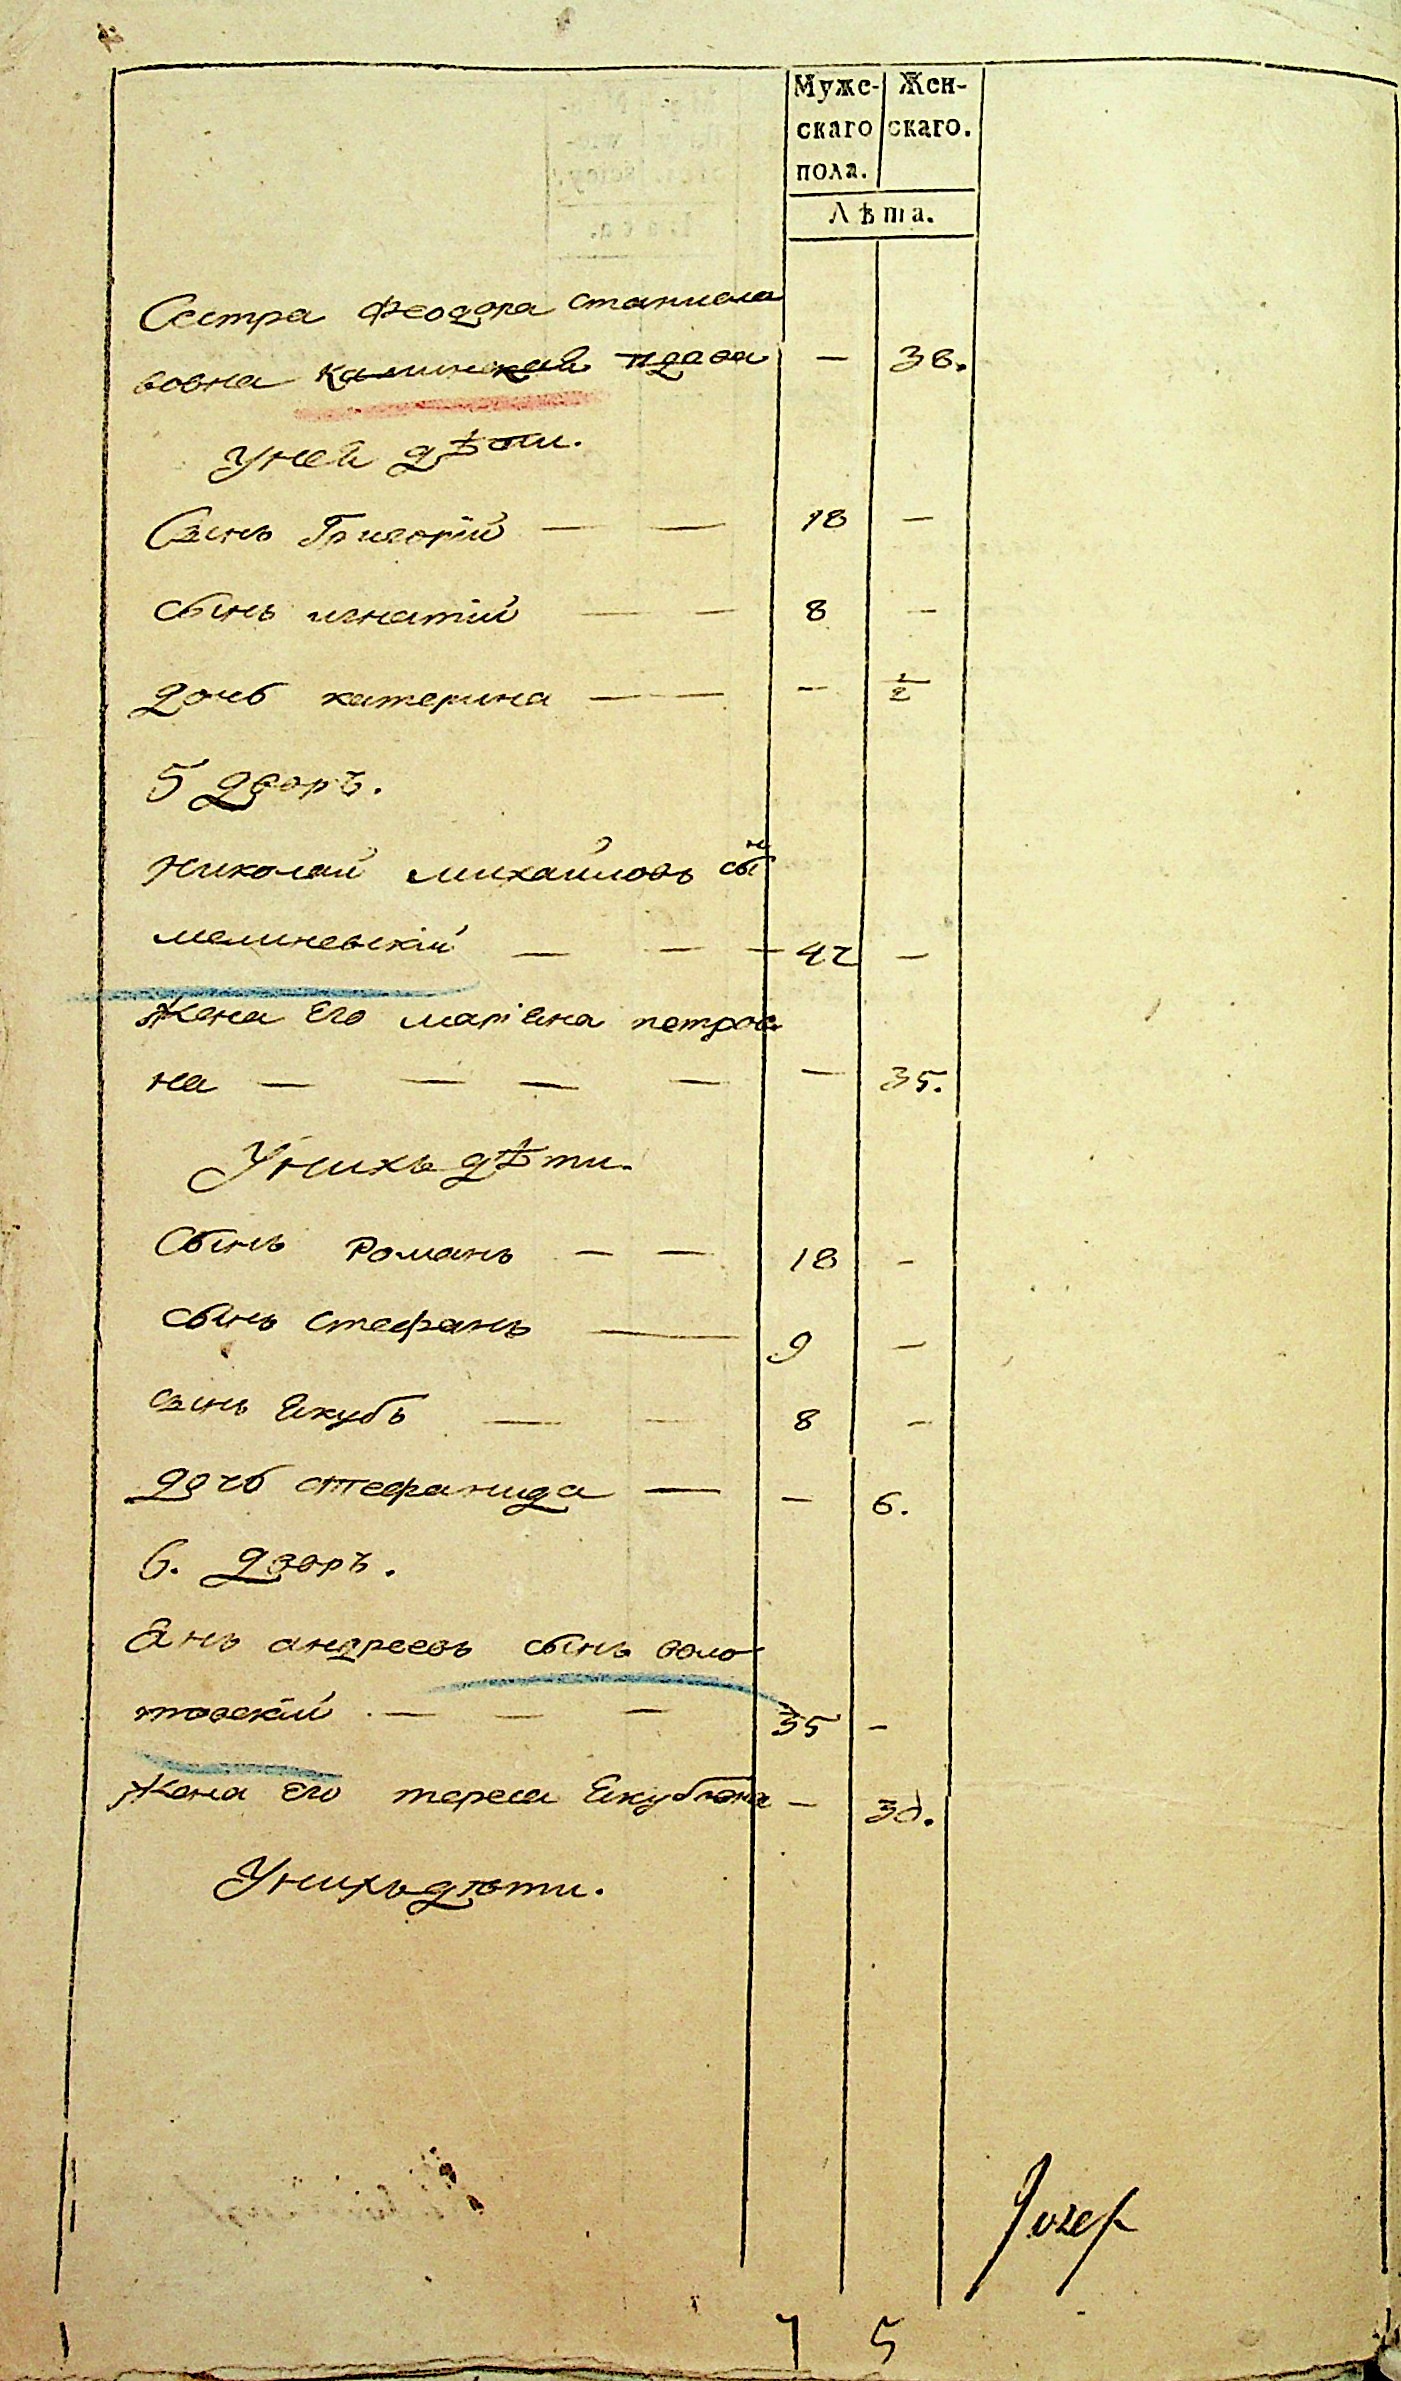 Муже- Жен-
скаго скаго.
пола.
Лѣта.
Сестра Феодора Станисла
вовна Калинская вдова — 38.
У нея дѣти.
Сынъ Григорій — — 18 —
сынъ игнатій — — 8 —
дочь катерина — — — ½
5 дворъ.
Николай михайловъ сын
мелиневскій — — — 42 —
Жена Его маріяна петров
на — — — — — 35.
У нихъ дѣти.
Сынъ Романъ — — 18 —
сынъ стефанъ — 9 —
сынъ Якубъ — — 8 —
дочь стефанида — — 6.
6. дворъ.
Янъ андреевъ сынъ воло
товскій — — — 35 —
Жена Его тереса Якубовна — 30.
У нихъ дѣти.
Jozef
7 5